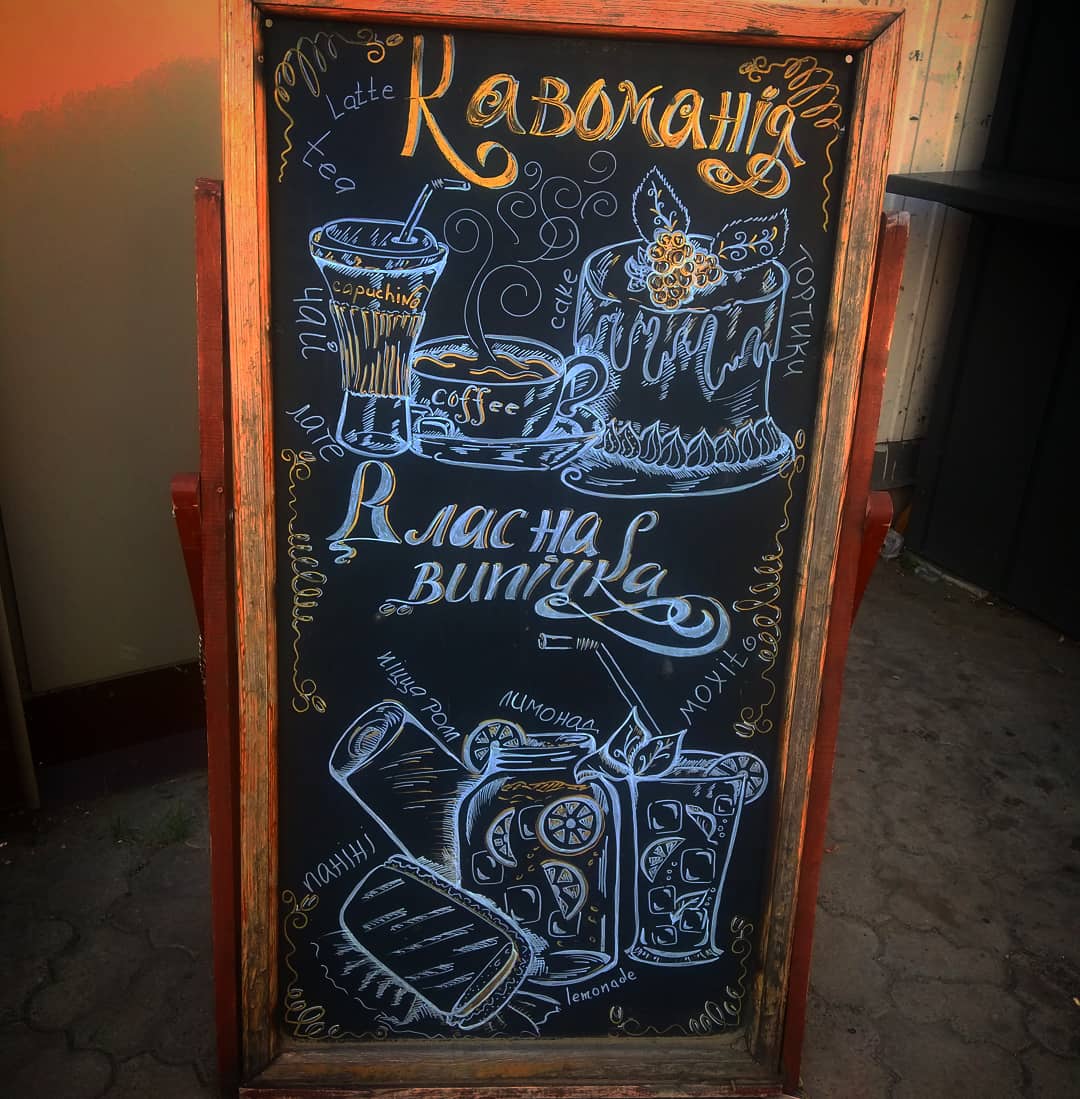 Latte
Кавоманія
tea
capuchino
чай
cake
тортики
coffee
лате
Власна
випічка
піцца рол
лимонад
мохіто
паніні
lemonade